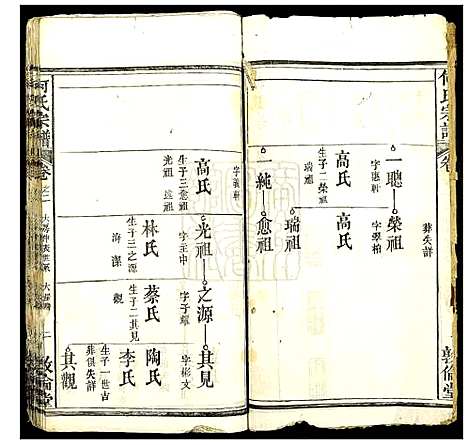 何氏宗譜
卷
敦倫堂
一聰
榮祖
葬失詳
字聰軒
字翠柏
高氏
生子二榮祖
瑞祖
瑞祖
一純
愈祖
字義軒
高氏
光祖
之源
其見
生子三愈祖
光祖
字主中
字子
字彬文
林氏
蔡氏
陶氏
生子三之源
生子二其見
觀
李氏
生子一世吉
葬俱失詳
其觀
何氏宗譜
卷之二
敦倫堂